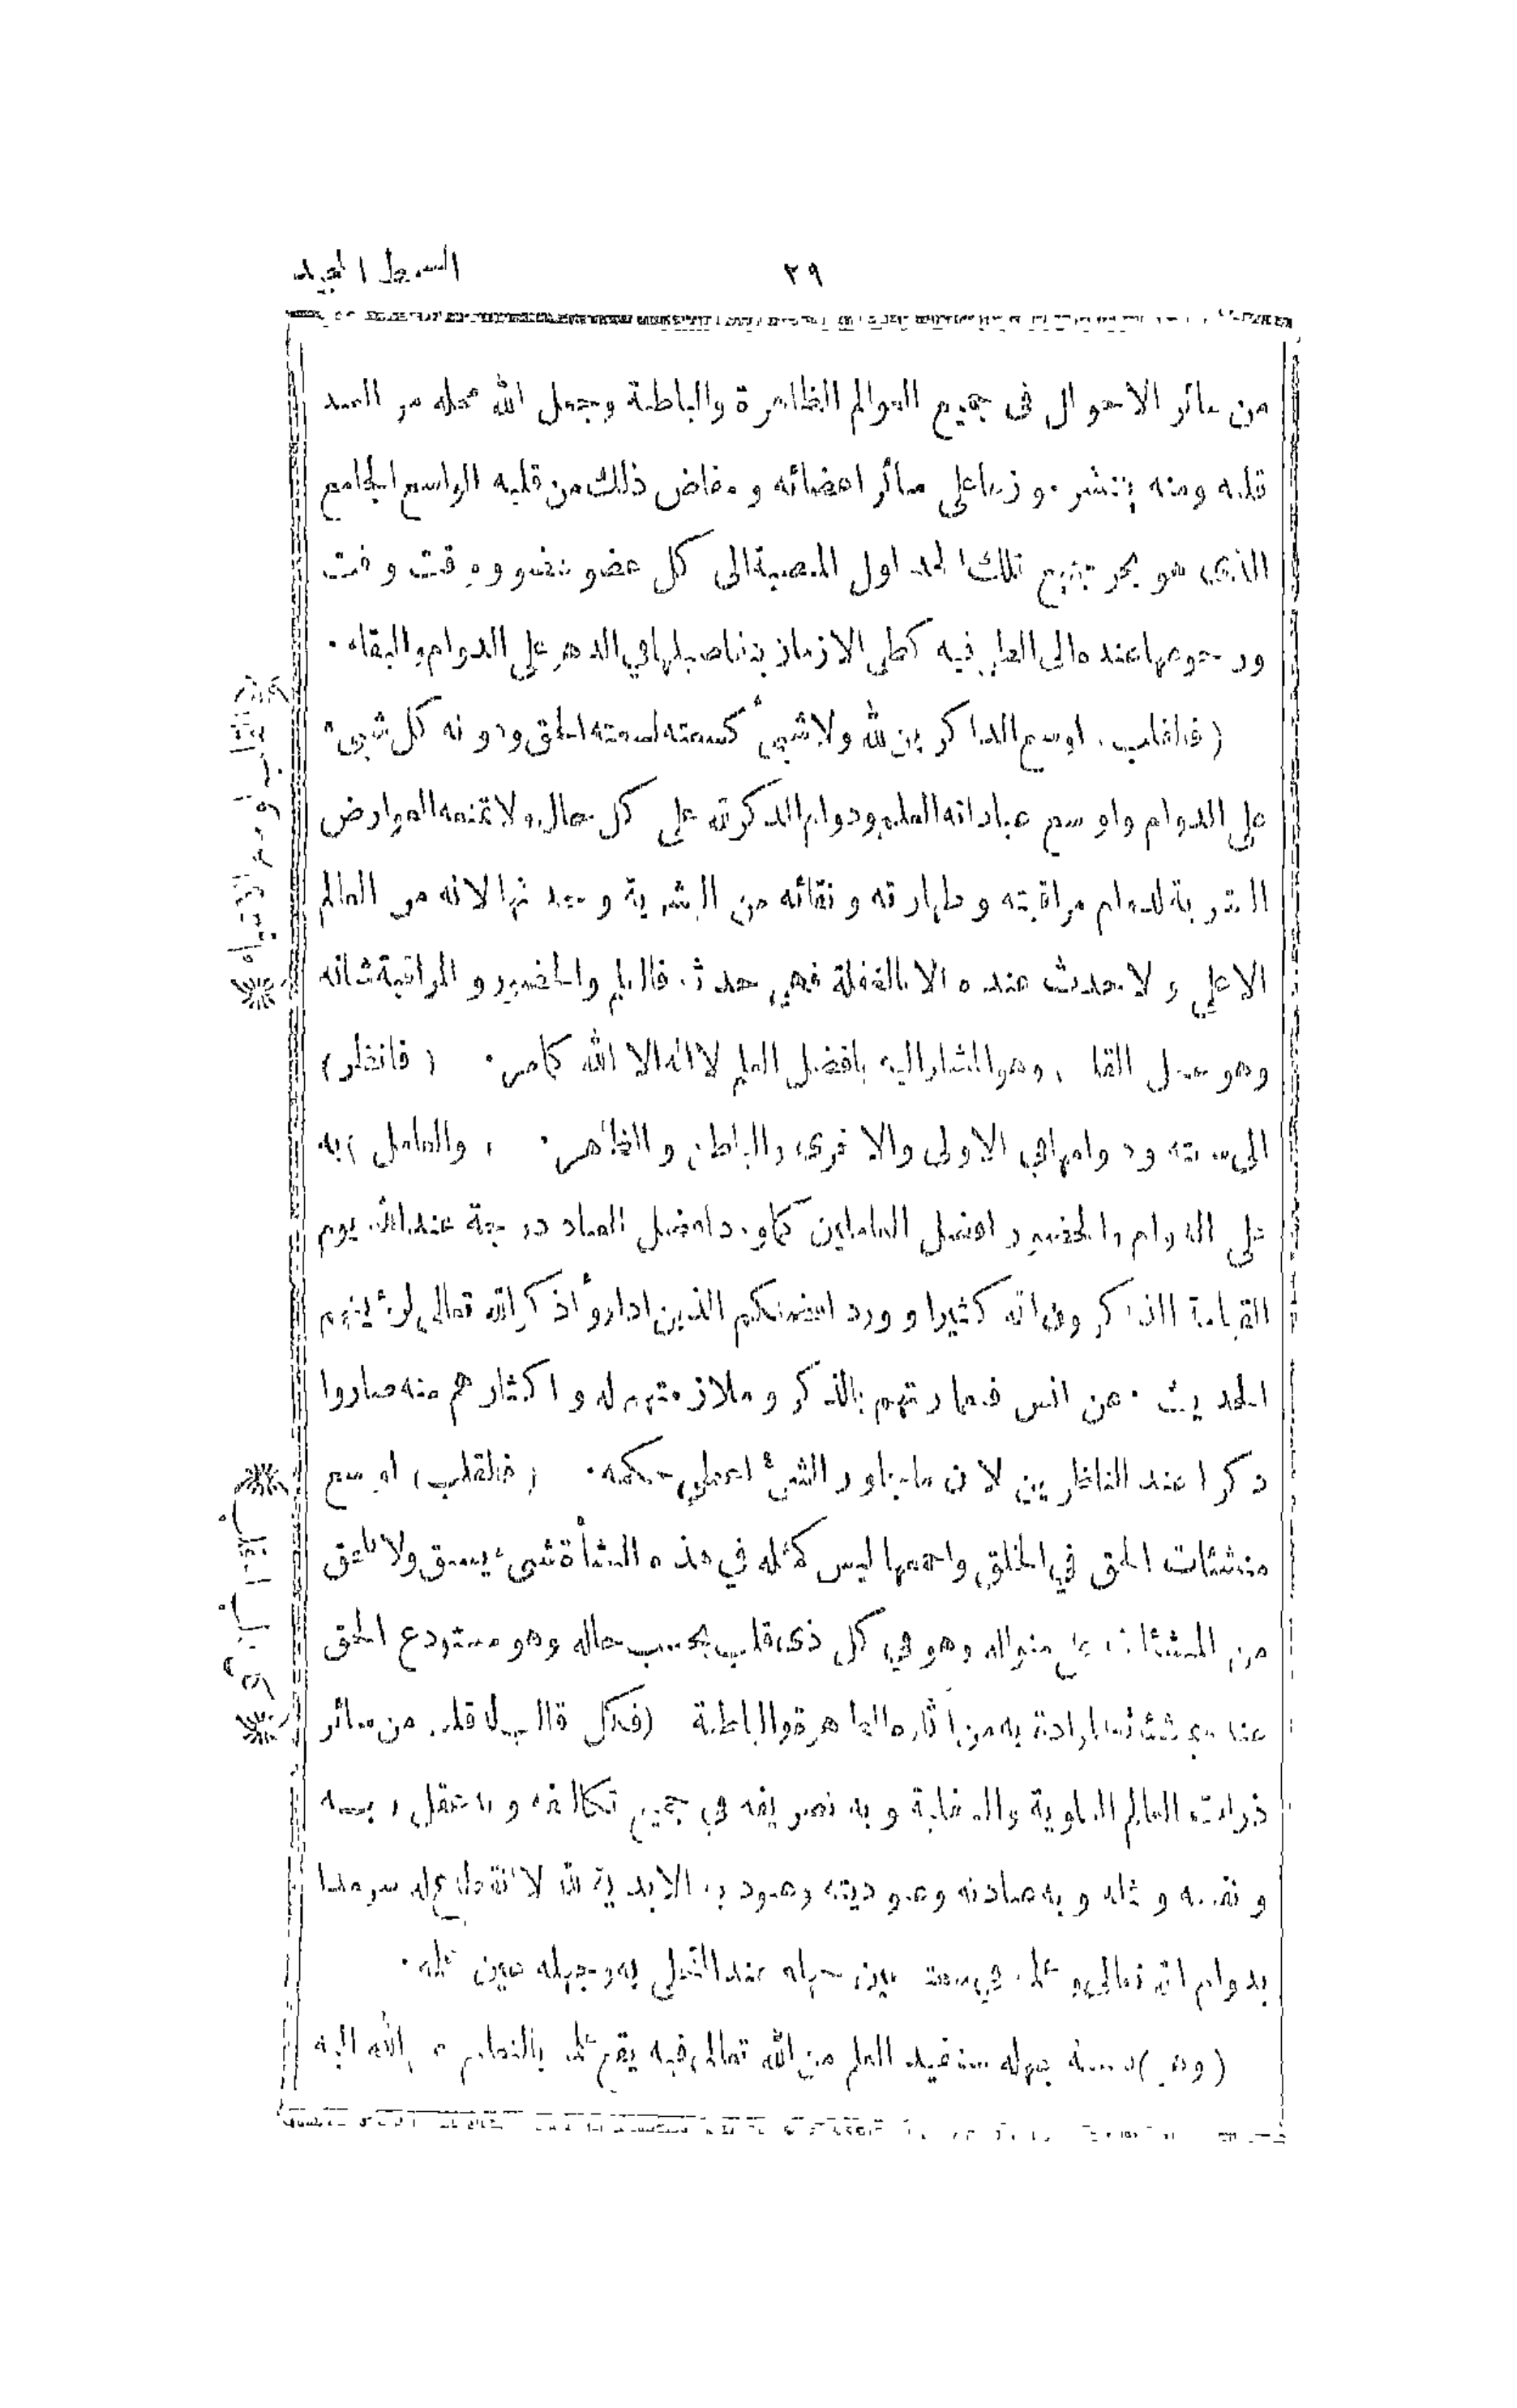 السمط المجيد
٢٩
من سائر الاحوال فى جميع العوالم الظاهرة والباطنة وجعل الله محله من العبد
قلبه ومنه ينتشر على سائر اعضائه ومفاض ذلك من قلبه الواسع الجامع
الذى هو بحر جميع تلك الجداول الى كل عضو عضو ووقت وقت
ورجوعها عنده الى العلم فيه كطى الازمان بتفاصيلها فى الدهر على الدوام والبقاء.
(فالقلب) اوسع الذاكرين لله ولا شىء كسعته لسعته الحق ودونه كل شىء
على الدوام واوسع عباداته العلم ودوام الذكر ته على كل حال ولا تمنعه العوارض
البشرية لدوام مراقبته وطهارته ونقائه من البشرية وحدثها لانه من العالم
الاعلى ولا يحدث عنده الا بالغفلة فهى حدثه فالعلم والحضور والمراقبة شانه
وهو عمل القلب وهو المشار اليه بافضل العلم لا اله الا الله كما مر. (فانظر)
الى سعته ودوامها فى الاولى والاخرى والباطن والظاهر. (والعامل) به
على الدوام والحضور افضل العاملين كما ورد افضل العباد درجة عند الله يوم
القيامة الذاكرون الله كثيرا وورد افضلكم الذين اذا رؤا ذكر الله تعالى لرؤيتهم
الحديث. عن انس بالذكر وملازمتهم له واكثارهم منه صاروا
ذكرا عند الناظرين لان ما جاور الشىء اعطى حكمه. (فالقلب) اوسع
منشئات الحق فى الخلق واجمعها ليس كمثله فى هذه النشأة شىء يسبق ولا يلحق
من المنشئات على منواله وهو فى كل ذى قلب بحسب حاله وهو مستودع الحق
عند من اثاره الظاهرة والباطنة (فكل قالب لا قلب من سائر
ذرات العالم العلوية والسفلية وبه تصريفه فى جميع تكاليفه وبه عقل
ونفسه وبه عبادته وعبوديته الابدية لله لا انقطاع له سرمدا
بدوام الله تعالى وعلمه فى سعته عين جهله عند التجلى به وجهله عين علمه.
جهله ستفيد العلم من الله تعالى فبه يقع علمه بالتعليم من الله اليه